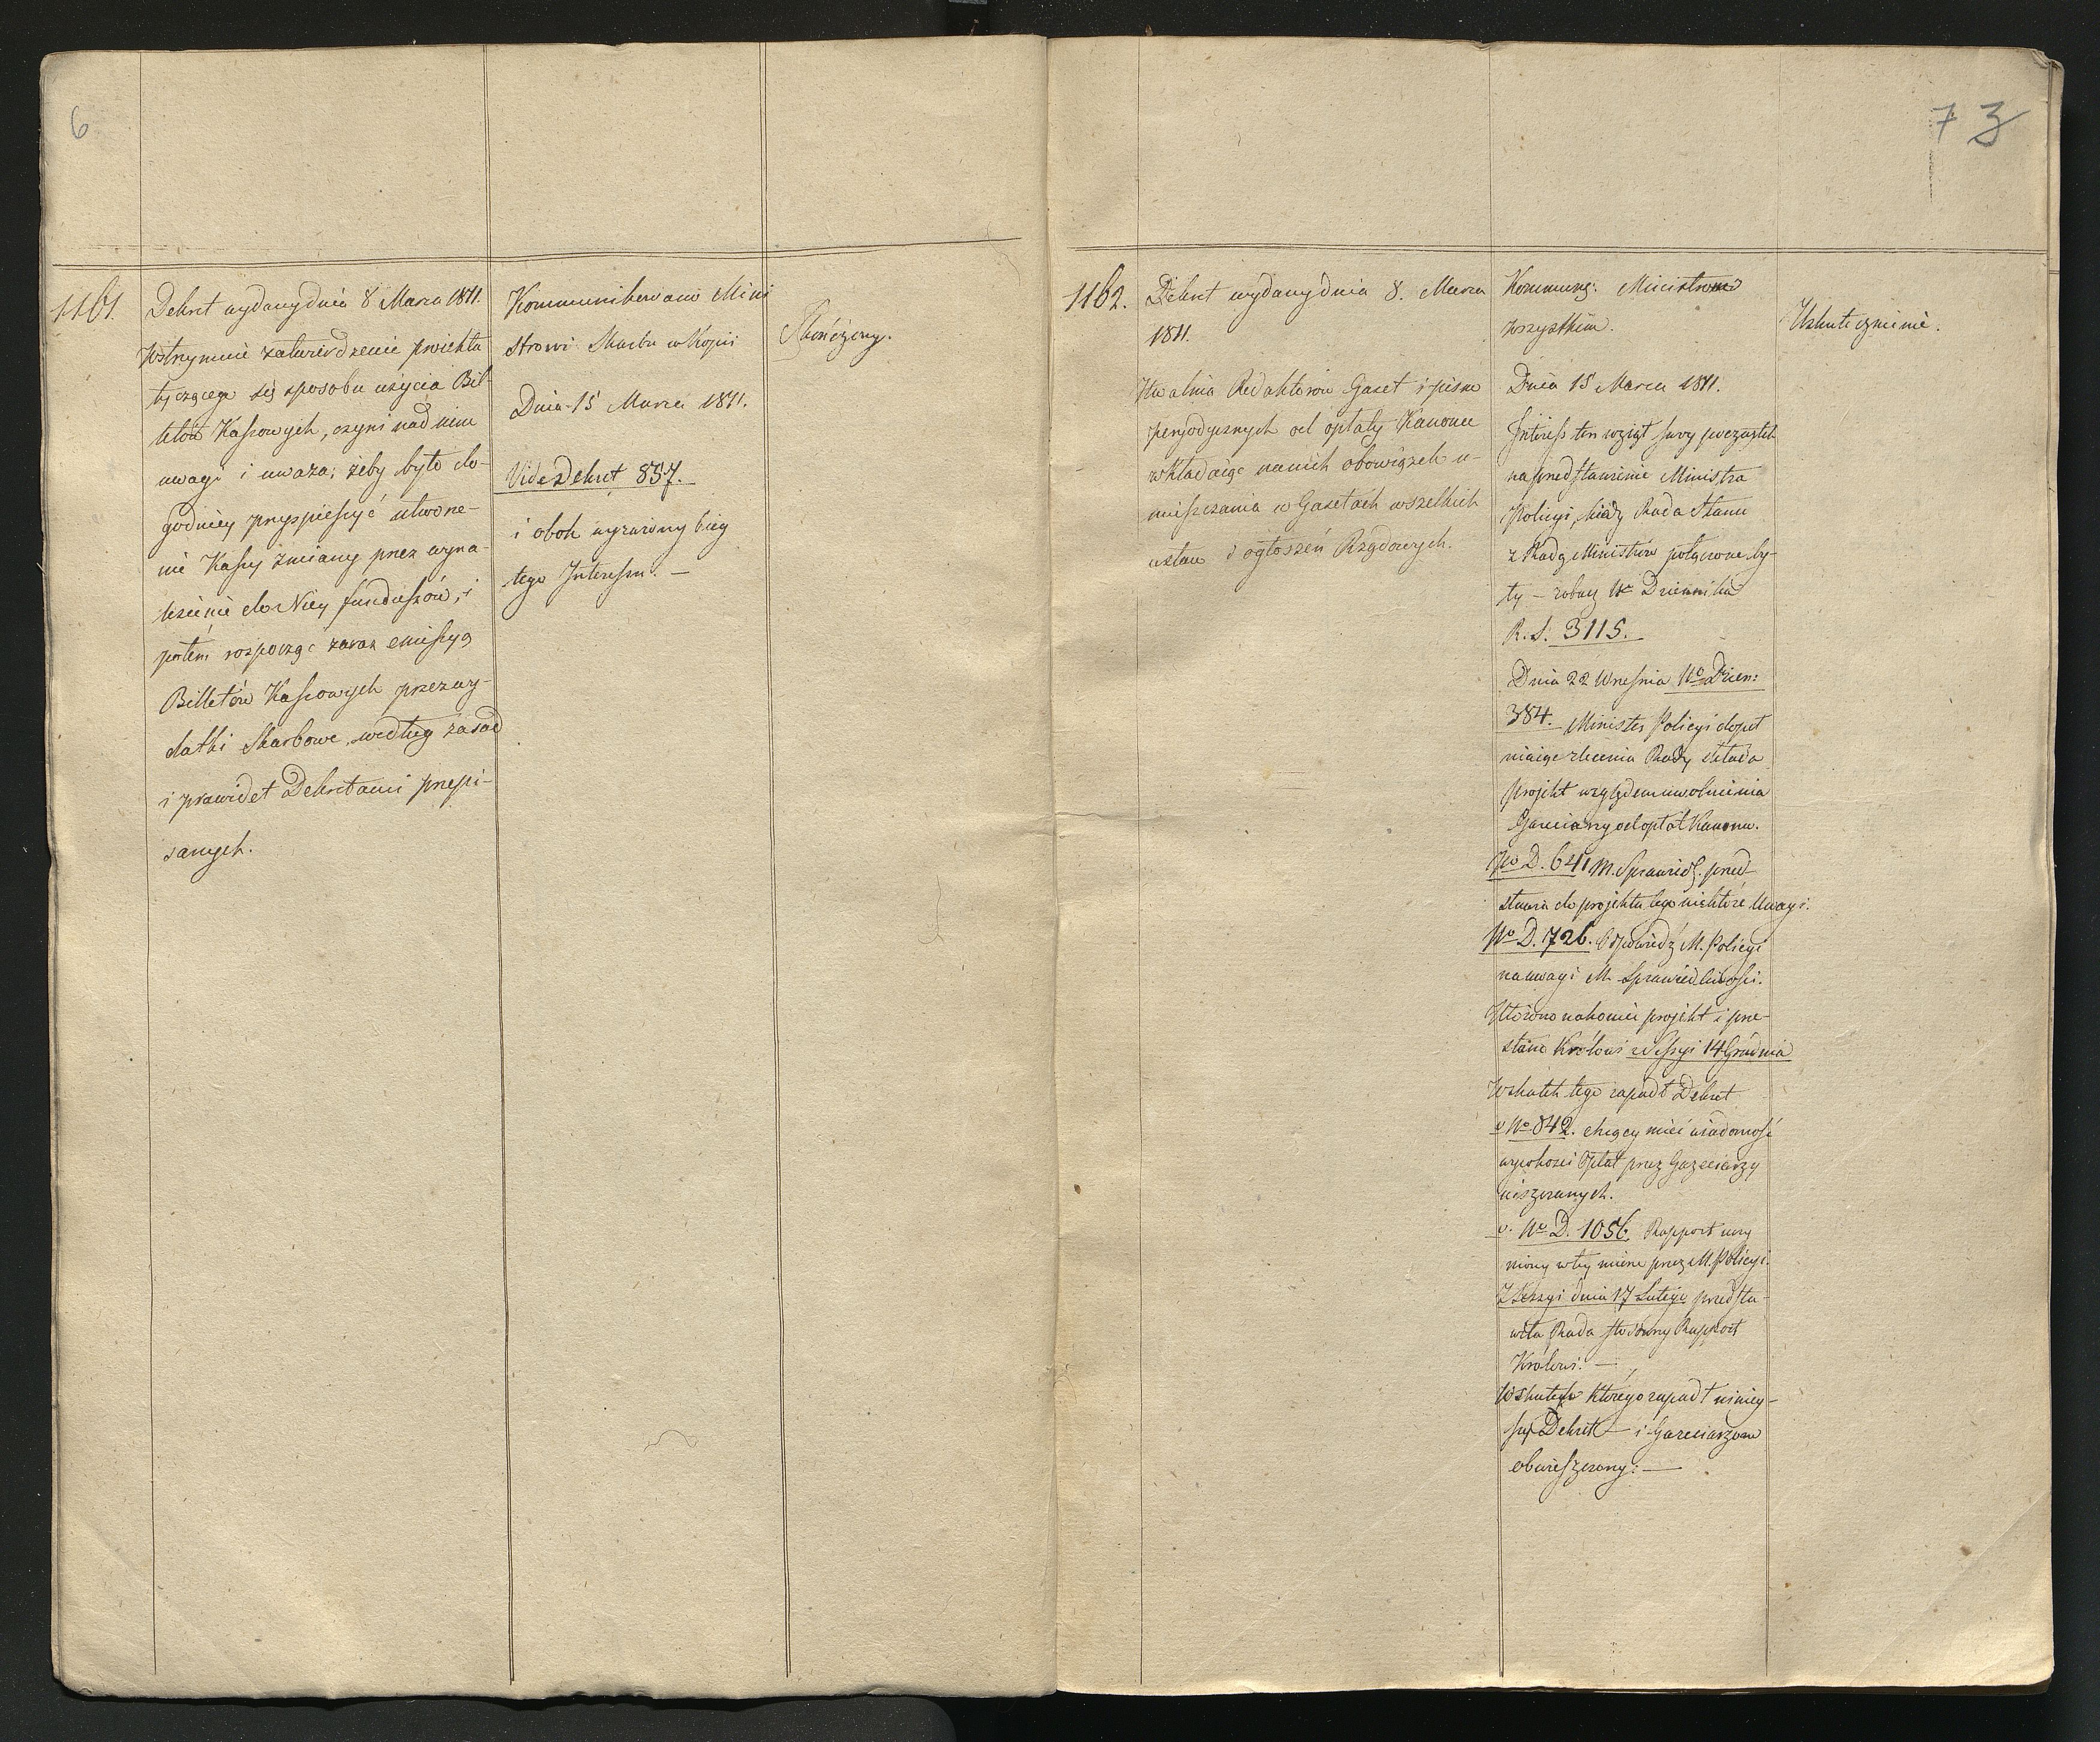 6
1161.
Dekret wydany dnia 8 Marca 1811.
Wstrzymuie zatwierdzenie proiektu
tyczącego się sposobu użycia Bil-
letów Kassowych, czyni nad nim
uwagi i uważa; żeby było do-
godniey przyspieszyć utworze-
nie Kassy Zmiany przez wyna-
lezienie do Niey funduszów, i
potem rozpocząć zaraz emissyą
Billetów Kassowych przez wy-
datki Skarbowe, według zasad
i prawideł Dekretami przepi-
sanych.
Kommunikowano Mini
strowi Skarbu w Kopii
Dnia 15 Marca 1811.
Vide Dekret 857.
i obok wyrażony bieg
tego Interessu. —
Skończony.
7 3
1162.
Dekret wydany dnia 8. Marca
1811.
Uwalnia Redaktorów Gazet i pism
peryodycznych od opłaty Kanonu
wkładaiąc na nich obowiązek u-
mieszczania w Gazetach wszelkich
ustaw i ogłoszeń Rządowych.
Kommung: Ministrom
wszystkim.
Dnia 15 Marca 1811.
Interess ten wziął swóy początek
na przedstawienie Ministra
Policyi, kiedy Rada Stanu
z Radą Ministrów połączone by-
ły — zobacz No Dziennika
R. S. 3115.
Dnia 22 Września No Dzien:
384. Minister Policyi dopeł
niaiąc zlecenia Rady składa
projekt względem uwolnienia
Gazeciarzy od opłat Kanonu.
No D. 641 M. Sprawiedl. przed-
stawia do projektu tego niektóre Uwagi.
No D. 726. Odpowiedź M. Policyi
na uwagi M. Sprawiedliwości.
Ułożono nakoniec projekt i prze-
słano Królowi z Sessyi 14 Grudnia
Wskutek tego zapadł Dekret
v No 842. chcący mieć wiadomość
wysokości Opłat przez Gazeciarzy
uiszczanych.
v. No D. 1056 Rapport uczy
niony w tey mierze przez M. Policyi.
Z Sessyi dnia 17 Lutego przedsta-
wiła Rada stosowny Rapport
Królowi. —
Wskutek którego zapadł niniey-
szy Dekret — i Gazeciarzom
obwieszczony: —
Uskutecznienie.